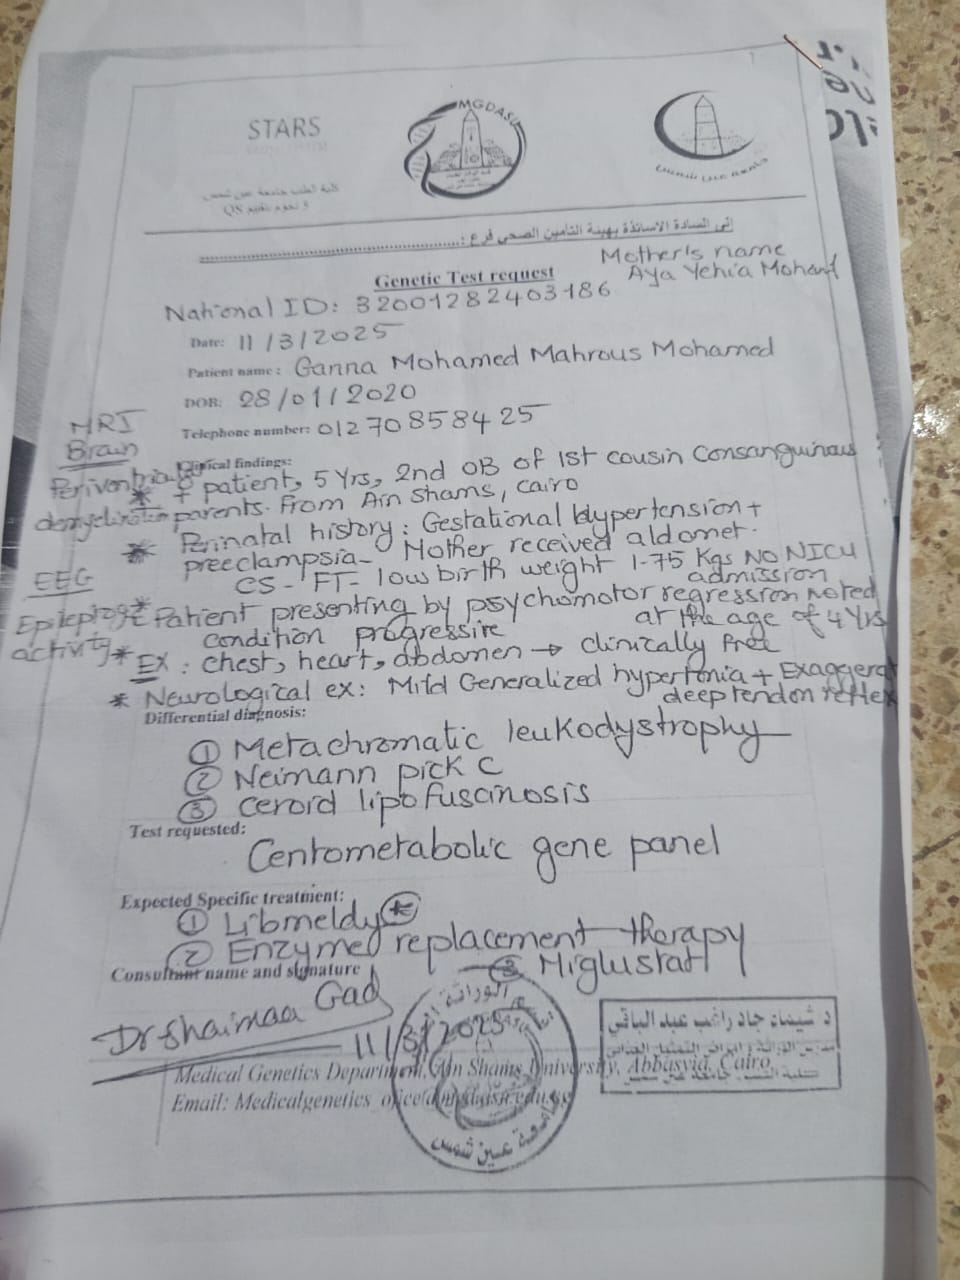 STARS
MGDASU
جامعة عين شمس
كلية الطب جامعة عين شمس
QS
إلى السادة الاساتذة بهيئة التأمين الصحي فرع :
Mother's name
Aya Yehia Mohamd
Genetic Test request
National ID: 32001282403186
Date: 11/3/2025
Patient name: Ganna Mohamed Mahrous Mohamed
DOB: 28/01/2020
Telephone number: 01270858425
MRI
Brain
Periventricular
demyelination
EEG
Epileptoge
activity
Clinical findings:
* f patient, 5 Yrs, 2nd OB of 1st cousin consanguinous
parents. From Ain shams, cairo
* Perinatal history: Gestational Hypertension +
preeclampsia - Mother received aldomet.
CS - FT - low birth weight 1.75 Kgs No NICU
admission
* Patient presenting by psychomotor regression noted
at the age of 4 Yrs
condition progressive
* Ex: chest, heart, abdomen → clinically free
* Neurological ex: Mild Generalized hypertonia + Exaggerat
deep tendon reflex
Differential diagnosis:
① Metachromatic leukodystrophy
② Neimann pick C
③ ceroid lipofuscinosis
Test requested:
Centometabolic gene panel
Expected Specific treatment:
① Libmeldy *
② Enzyme replacement therapy
③ Miglustat
Consultant name and signature
Dr Shaimaa Gad
11/3/2025
د شيماء جاد راغب عبد الباقي
كلية الطب جامعة عين شمس
Medical Genetics Department, Ain Shams University, Abbasyia, Cairo
Email: Medicalgenetics
الوراثة
جامعة عين شمس